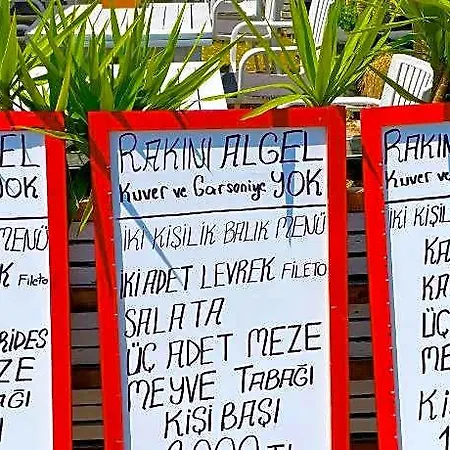 EL
YOK
MENÜ
K FiLETO
RİDES
ZE
AĞI
I
RAKINI ALGEL
Kuver ve Garsoniye YOK
İKİ KİŞİLİK BALIK MENÜ
İKİ ADET LEVREK FİLETO
SALATA
ÜÇ ADET MEZE
MEYVE TABAĞI
KİŞİ BAŞI
RAKIN
Kuver ve
İKİ KİŞİL
KA
KA
ÜÇ
ME
Kİ